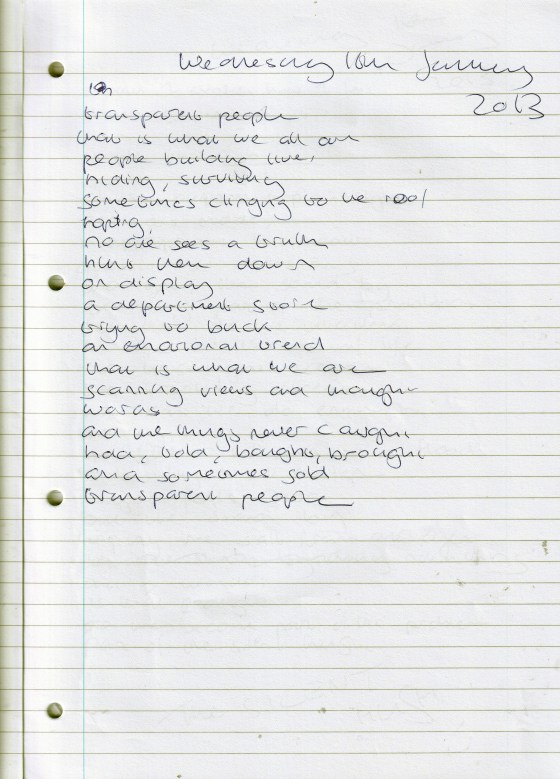 Wednesday 16th January
2013
transparent people
that is what we all are
people building live,
hiding, surviving
sometimes clinging to the roof
hoping,
no one sees a truth
hunt them down
on display
a department store
trying to buck
an emotional trend
that is what we are
scanning views and thought
words
and the things never caught,
had, told, bought, brought
and sometimes sold
transparent people